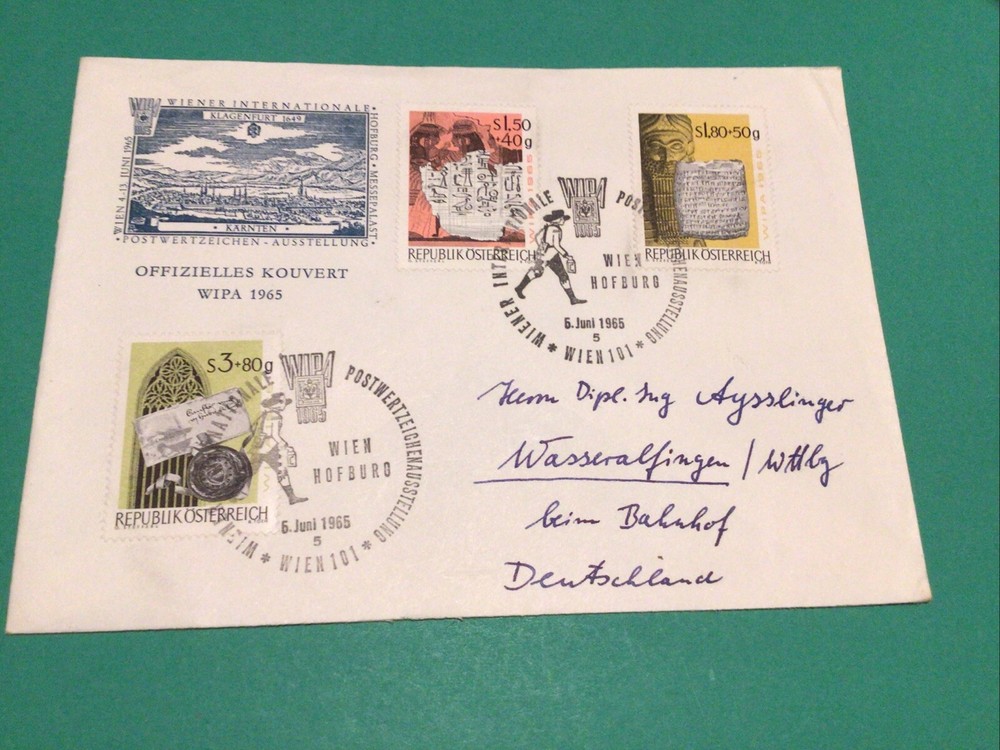 WIPA
WIENER INTERNATIONALE
HOFBURG · MESSEPALAST
WIEN 4.-13. JUNI 1965
KLAGENFURT 1649
KÄRNTEN
POSTWERTZEICHEN - AUSSTELLUNG
OFFIZIELLES KOUVERT
WIPA 1965
S1.50
+40g
WIPA 1965
REPUBLIK ÖSTERREICH
S1.80+50g
WIPA 1965
REPUBLIK ÖSTERREICH
WIENER INTERNATIONALE
WIPA
1965
POSTWERTZEICHENAUSSTELLUNG
WIEN
HOFBURG
6. Juni 1965
5
* WIEN 101 *
S3+80g
REPUBLIK ÖSTERREICH
WIENER INTERNATIONALE
WIPA
1965
POSTWERTZEICHENAUSSTELLUNG
WIEN
HOFBURG
6. Juni 1965
5
* WIEN 101 *
Herrn Dipl. Ing Aysslinger
Wasseralfingen / Wttbg
beim Bahnhof
Deutschland